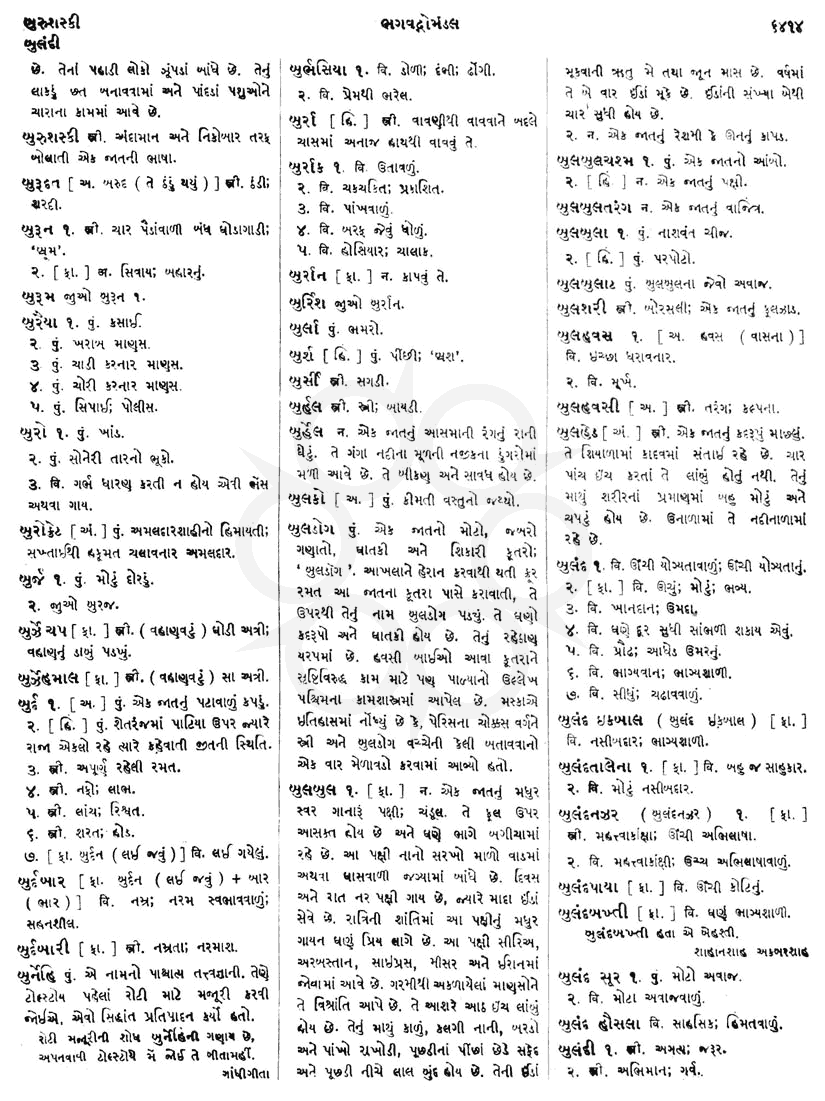 બુરુશસ્કી
બુલંદી
ભગવદ્ગોમંડલ
૬૪૧૪
છે. તેનાં પહાડી લોકો ઝૂંપડાં બાંધે છે. તેનું
લાકડું છત બનાવવામાં અને પાંદડાં પશુઓને
ચારાના કામમાં આવે છે.
બુરુશસ્કી સ્ત્રી. અંદામાન અને નિકોબાર તરફ
બોલાતી એક જાતની ભાષા.
બુરૂદત [ અ. બરુદ ( તે ઠંડું થયું ) ] સ્ત્રી. ઠંડી;
શરદી.
બુરૂન ૧. સ્ત્રી. ચાર પૈડાંવાળી બંધ ઘોડાગાડી;
‘બ્રૂમ’.
૨. [ ફા. ] અ. સિવાય; બહારનું.
બુરૂમ જુઓ બુરૂન ૧.
બુરૈયા ૧. પું. કસાઈ.
૨. પું. ખરાબ માણસ.
૩ પું. ચાડી કરનાર માણસ.
૪. પું. ચોરી કરનાર માણસ.
૫. પું. સિપાઈ; પોલીસ.
બુરો ૧. પું. ખાંડ.
૨. પું. સોનેરી તારનો ભૂકો.
૩. વિ. ગર્ભ ધારણ કરતી ન હોય એવી ભેંસ
અથવા ગાય.
બુરોક્રેટ [ અં. ] પું. અમલદારશાહીનો હિમાયતી;
સખ્તાઈથી હકૂમત ચલાવનાર અમલદાર.
બુર્જ ૧. પું. મોટું દોરડું.
૨. જુઓ બુરજ.
બુર્ઝેચપ [ ફા. ] સ્ત્રી. ( વહાણવટું ) ધોડી અત્રી;
વહાણનું ડાબું પડખું.
બુર્ઝેહમાલ [ ફા. ] સ્ત્રી. ( વહાણવટું ) સા અત્રી.
બુર્દ ૧. [ અ. ] પું. એક જાતનું પટાવાળું કપડું.
૨. [ હિં. ] પું. શેતરંજમાં પાટિયા ઉપર જ્યારે
રાજા એકલો રહે ત્યારે કહેવાતી જીતની સ્થિતિ.
૩. સ્ત્રી. અપૂર્ણ રહેલી રમત.
૪. સ્ત્રી. નફો; લાભ.
૫. સ્ત્રી. લાંચ; રિશ્વત.
૬. સ્ત્રી. શરત; હોડ.
૭. [ ફા. બુર્દન ( લઈ જવું ) ] વિ. લઈ ગયેલું.
બુર્દબાર [ ફા. બુર્દન ( લઈ જવું ) + બાર
( ભાર ) ] વિ. નમ્ર; નરમ સ્વભાવવાળું;
સહનશીલ.
બુર્દબારી [ ફા. ] સ્ત્રી. નમ્રતા; નરમાશ.
બુર્નેહિ પું. એ નામનો પાશ્ચાત્ય તત્ત્વજ્ઞાની. તેણે
ટોલ્સ્ટોય પહેલાં રોટી માટે મજૂરી કરવી
જોઈએ, એવો સિદ્ધાંત પ્રતિપાદન કર્યો હતો.
રોટી મજૂરીની શોધ બુર્નેહિની ગણાય છે,
અપનાવવી ટોલ્સ્ટોયે મેં જોઈ તે ગીતામહીં.
ગાંધીગીતા
બુર્ભસિયા ૧. વિ. ડોળી; દંભી; ઢોંગી.
૨. વિ. પ્રેમથી ભરેલ.
બુર્રા [ હિં. ] સ્ત્રી. વાવણીથી વાવવાને બદલે
ચાસમાં અનાજ હાથથી વાવવું તે.
બુર્રાક ૧. વિ. ઉતાવળું.
૨. વિ. ચકચકિત; પ્રકાશિત.
૩. વિ. પાંખવાળું.
૪. વિ. બરફ જેવું ધોળું.
૫. વિ. હોંસિયાર; ચાલાક.
બુર્રાન [ ફા. ] ન. કાપવું તે.
બુર્રિશ જુઓ બુર્રાન.
બુર્લા પું. ભમરો.
બુર્શ [ હિં. ] પું. પીંછી; ‘બ્રશ’.
બુર્સી સ્ત્રી. સગડી.
બુર્હુલ ન. સ્ત્રી; બાયડી.
બુર્હેલ ન. એક જાતનું આસમાની રંગનું રાની
ઘેટું. તે ગંગા નદીના મૂળની નજીકના ડુંગરોમાં
મળી આવે છે. તે બીકણુ અને સાવધ હોય છે.
બુલકો [ અ. ] પું. કીમતી વસ્તુનો જથ્થો.
બુલડોગ પું. એક જાતનો મોટો, જબરો
ગણાતો, ઘાતકી અને શિકારી કૂતરો;
‘ બુલડૉગ’. આખલાને હેરાન કરવાથી થતી ક્રૂર
રમત આ જાતના કૂતરા પાસે કરાવાતી, તે
ઉપરથી તેનું નામ બુલડોગ પડ્યું. તે ઘણો
કદરૂપો અને ઘાતકી હોય છે. તેનું રહેઠાણ
યરપમાં છે. હવસી બાઈઓ આવા કૂતરાને
સૃષ્ટિવિરુદ્ધ કામ માટે પણ પાળ્યાનો ઉલ્લેખ
પશ્ચિમના કામશાસ્ત્રમાં આપેલ છે. મસ્કાએ
ઇતિહાસમાં નોંધ્યું છે કે, પેરિસના ચોક્કસ વર્ગને
સ્ત્રી અને બુલડોગ વચ્ચેની કેલી બતાવવાનો
એક વાર મેળાવડો કરવામાં આવ્યો હતો.
બુલબુલ ૧. [ ફા. ] ન. એક જાતનું મધુર
સ્વર ગાનારું પક્ષી; ચંડૂલ. તે ફૂલ ઉપર
આસક્ત હોય છે અને ઘણે ભાગે બગીચામાં
રહે છે. આ પક્ષી નાનો સરખો માળો વાડમાં
અથવા ઘાસવાળી જગ્યામાં બાંધે છે. દિવસ
અને રાત નર પક્ષી ગાય છે, જ્યારે માદા ઈંડાં
સેવે છે. રાત્રિની શાંતિમાં આ પક્ષીનું મધુર
ગાયન ઘણું પ્રિય લાગે છે. આ પક્ષી સીરિઅ,
અરબસ્તાન, સાઇપ્રસ, મીસર અને ઈરાનમાં
જોવામાં આવે છે. ગરમીથી અકળાયેલાં માણસોને
તે વિશ્રાંતિ આપે છે. તે આશરે આઠ ઇંચ લાંબું
હોય છે. તેનું માથું કાળું, કલગી નાની, બરડો
અને પાંખો રાખોડી, પૂછડીનાં પીંછાં છેડે સફેદ
અને પૂછડી નીચે લાલ બુંદ હોય છે. તેની ઈંડાં
મૂકવાની ઋતુ મે તથા જૂન માસ છે. વર્ષમાં
તે બે વાર ઈંડાં મૂકે છે. ઈંડાંની સંખ્યા બેથી
ચાર સુધી હોય છે.
૨. ન. એક જાતનું રેશમી કે ઊનનું કાપડ.
બુલબુલચશ્મ ૧. પું. એક જાતનો આંબો.
૨. [ હિં. ] ન. એક જાતનું પક્ષી.
બુલબુલતરંગ ન. એક જાતનું વાજિંત્ર.
બુલબુલા ૧. પું. નાશવંત ચીજ.
૨. [ હિં. ] પું. પરપોટો.
બુલબુલાટ પું. બુલબુલના જેવો અવાજ.
બુલશરી સ્ત્રી. બોરસલી; એક જાતનું ફૂલઝાડ.
બુલહવસ ૧. [ અ. હવસ ( વાસના ) ]
વિ. ઇચ્છા ધરાવનાર.
૨. વિ. મૂર્ખ.
બુલહવસી [ અ. ] સ્ત્રી. તરંગ; કલ્પના.
બુલહેડ [ અં. ] સ્ત્રી. એક જાતનું કદરૂપું માછલું.
તે શિયાળામાં કાદવમાં સંતાઈ રહે છે. ચાર
પાંચ ઇંચ કરતાં તે લાંબું હોતું નથી. તેનું
માથું શરીરનાં પ્રમાણમાં બહુ મોટું અને
ચપટું હોય છે. ઉનાળામાં તે નદીનાળામાં
રહે છે.
બુલંદ ૧. વિ. ઊંચી યોગ્યતાવાળું; ઊંચી યોગ્યતાનું.
૨. [ ફા. ] વિ. ઊંચું; મોટું; ભવ્ય.
૩. વિ. ખાનદાન; ઉમદા.
૪. વિ. ઘણે દૂર સુધી સાંભળી શકાય એવું.
૫. વિ. પ્રૌઢ; આધેડ ઉમરનું.
૬. વિ. ભાગ્યવાન; ભાગ્યશાળી.
૭. વિ. સીધું; ચઢાવવાળું.
બુલંદ ઇકબાલ ( બુલંદ ઇક઼બાલ ) [ ફા. ]
વિ. નસીબદાર; ભાગ્યશાળી.
બુલંદતાલેના ૧. [ ફા. ] વિ. બહુ જ સાહુકાર.
૨. વિ. મોટું નસીબદાર.
બુલંદનઝર ( બુલંદનઝ઼ર ) ૧. [ ફા. ]
સ્ત્રી. મહત્ત્વાકાંક્ષા; ઊંચી અભિલાષા.
૨. વિ. મહત્ત્વાકાંક્ષી; ઉચ્ચ અભિલાષાવાળું.
બુલંદપાયા [ ફા. ] વિ. ઊંચી કોટિનું.
બુલંદબખ્તી [ ફા. ] વિ. ઘણું ભાગ્યશાળી.
બુલંદબખ્તી હતા એ બેહસ્તી.
શાહાનશાહ અકબરશાહ
બુલંદ સૂર ૧. પું. મોટો અવાજ.
૨. વિ. મોટા અવાજવાળું.
બુલંદ હૌસલા વિ. સાહસિક; હિંમતવાળું.
બુલંદી ૧. સ્ત્રી. અગત્ય; જરૂર.
૨. સ્ત્રી. અભિમાન; ગર્વ.